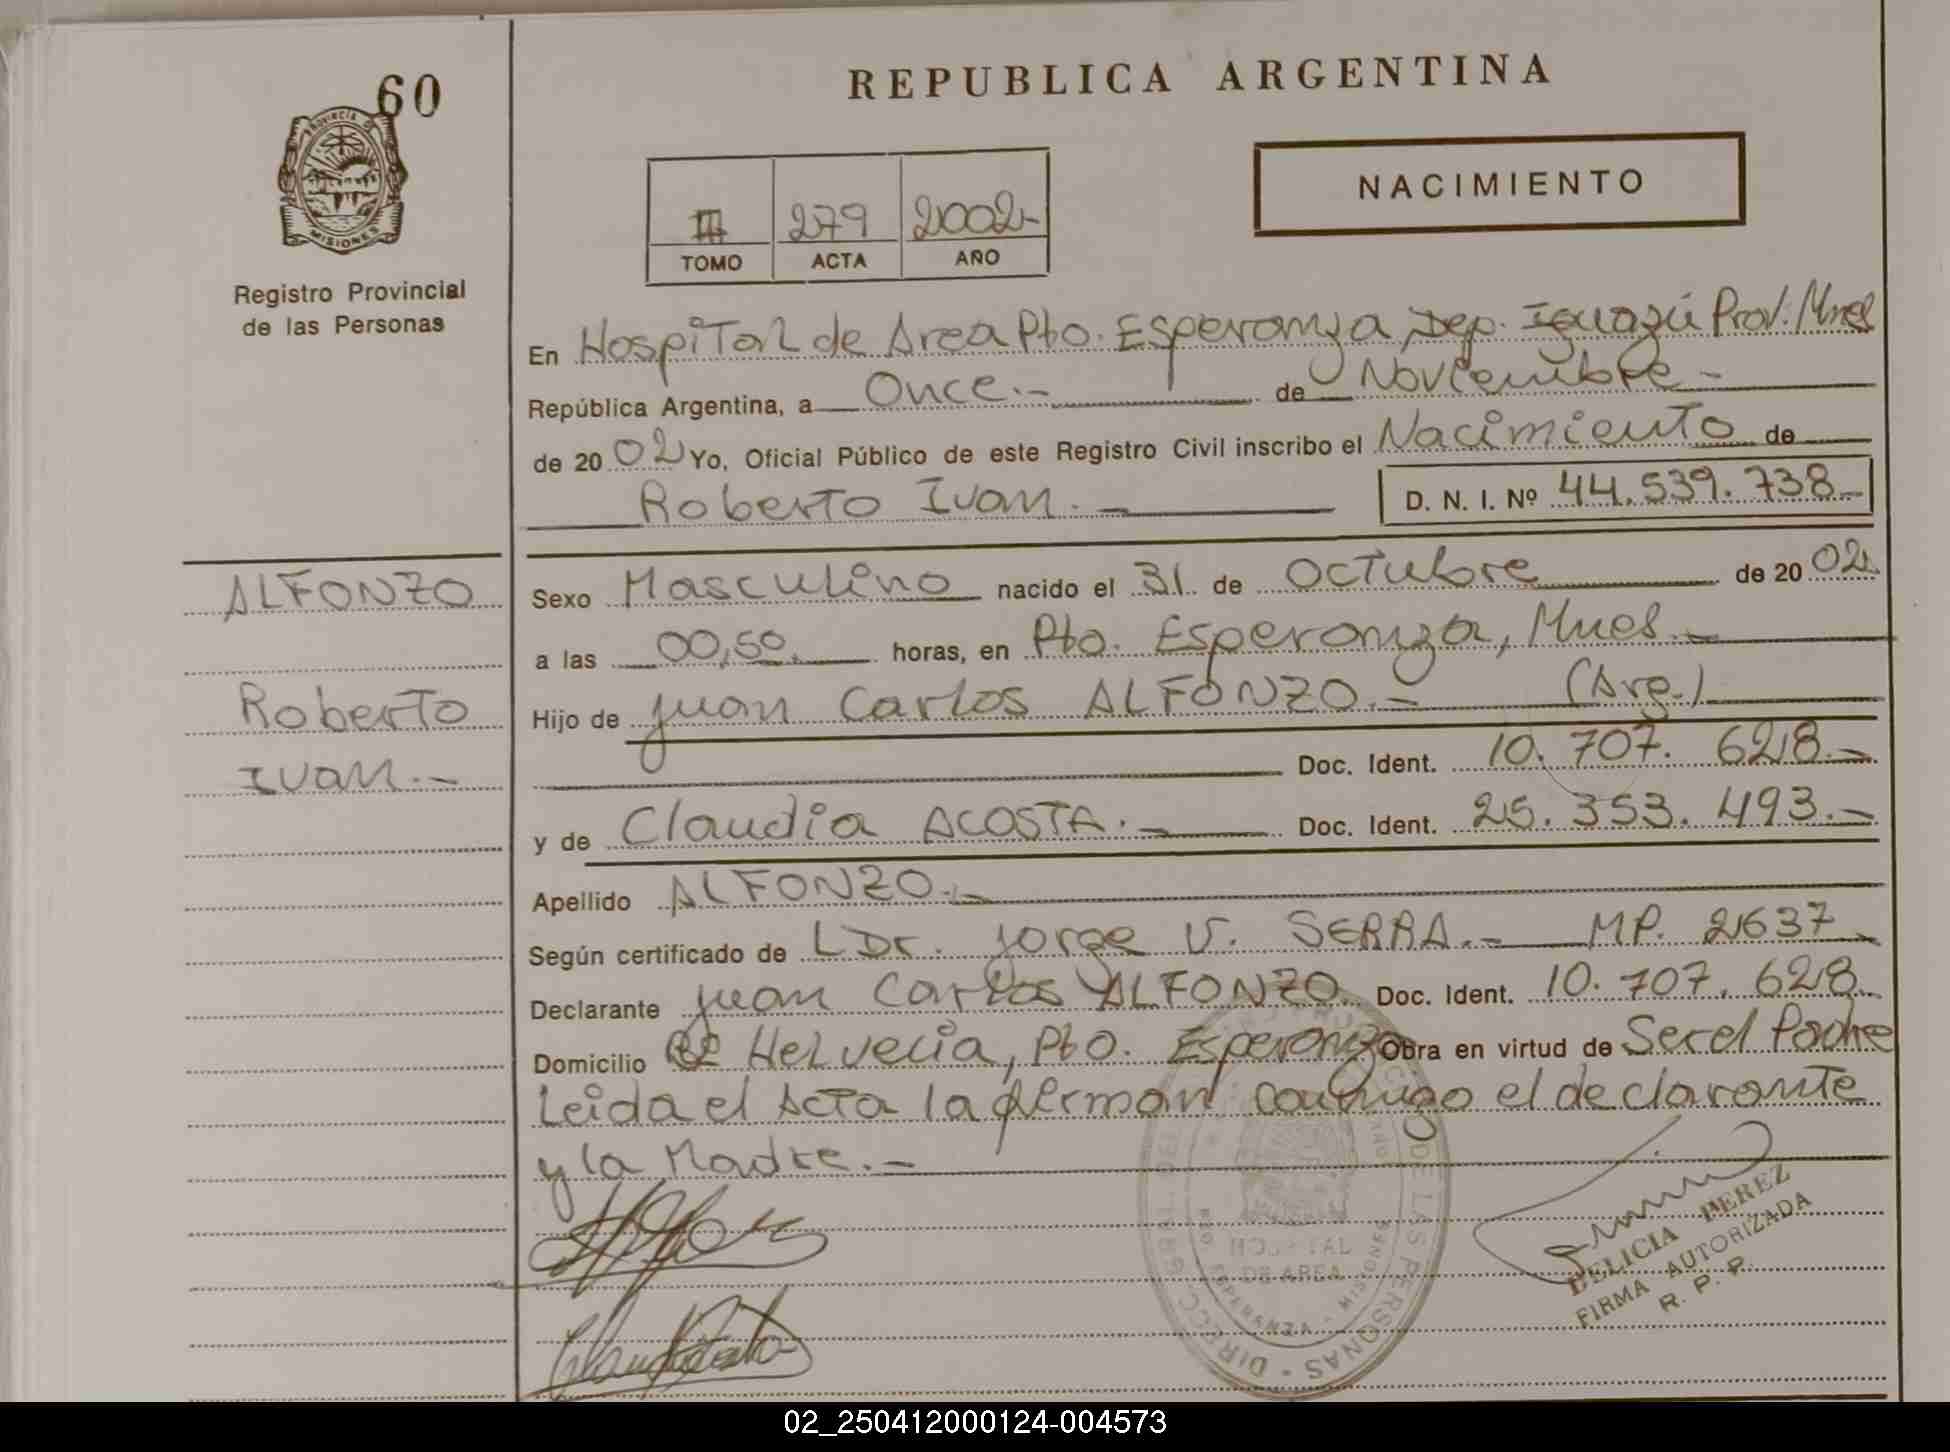 60
PROVINCIA D
MISIONES
Registro Provincial
de las Personas
REPUBLICA ARGENTINA
NACIMIENTO
III 279 2002-
TOMO ACTA AÑO
En Hospital de Area Pto. Esperanza, Dep. Iguazú Prov. Mnes
República Argentina, a Once.- de Noviembre-
de 2002 Yo, Oficial Público de este Registro Civil inscribo el Nacimiento de
Roberto Ivan.- D. N. I. Nº 44.539.738-
ALFONZO
Roberto
Ivan.-
Sexo Masculino nacido el 31 de Octubre de 2002
a las 00,50. horas, en Pto. Esperanza, Mnes.-
Hijo de Juan Carlos ALFONZO.- (Arg.)
Doc. Ident. 10.707.628.-
y de Claudia ACOSTA.- Doc. Ident. 25.353.493.-
Apellido ALFONZO.-
Según certificado de Dr. Jorge V. SERRA.- MP. 2637-
Declarante Juan Carlos ALFONZO Doc. Ident. 10.707.628-
Domicilio Helvecia, Pto. Esperanza Obra en virtud de Ser el Padre
Leida el Acta la firman conmigo el declarante
y la Madre.-
HOSPITAL
DE AREA
ESPERANZA - MISIONES
DE LAS PERSONAS
DELICIA PEREZ
FIRMA AUTORIZADA
R. P. P.
02_250412000124-004573